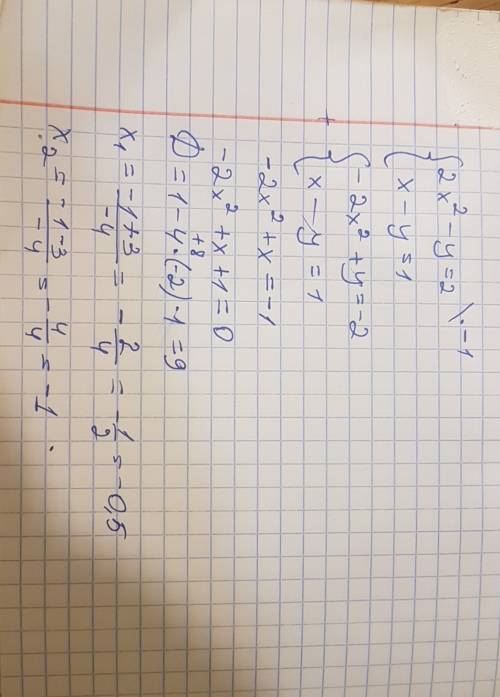 { 2x² - y = 2 \·-1
{ x - y = 1
+ { -2x² + y = -2
{ x - y = 1
-2x² + x = -1
-2x² + x + 1 = 0
+8
D = 1 - 4·(-2)·1 = 9
x₁ = (-1+3)/(-4) = -2/4 = -1/2 = -0,5
x₂ = (-1-3)/(-4) = -4/4 = -1.